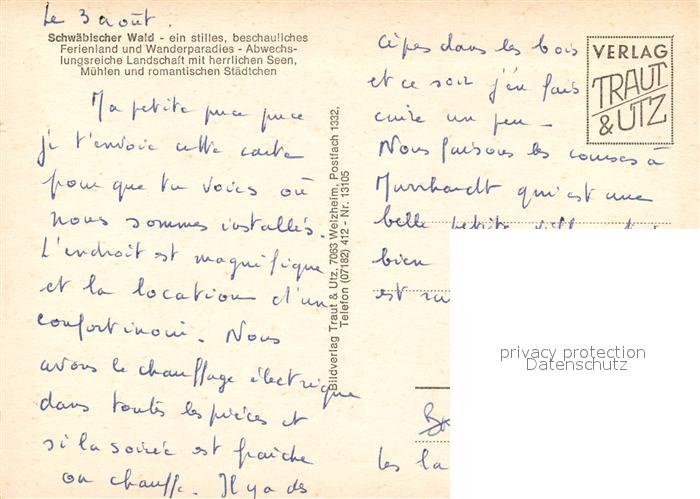 Le 3 août.
Schwäbischer Wald - ein stilles, beschauliches
Ferienland und Wanderparadies - Abwechs-
lungsreiche Landschaft mit herrlichen Seen,
Mühlen und romantischen Städtchen
Ma petite puce puce
je t'envoie cette carte
pour que tu voies où
nous sommes installés.
L'endroit est magnifique
et la location d'un
confort inouï. Nous
avons le chauffage électrique
dans toutes les pièces et
si la soirée est fraîche
on chauffe. Il y a des
Bildverlag Traut & Utz, 7063 Welzheim, Postfach 1332,
Telefon (07182) 412 - Nr. 13105
cèpes dans les bois
et ce soir j'en fais
cuire un peu -
Nous faisons les courses à
Murrhardt qui est une
belle petite ville
bien
est
les la
VERLAG
TRAUT
& UTZ
privacy protection
Datenschutz